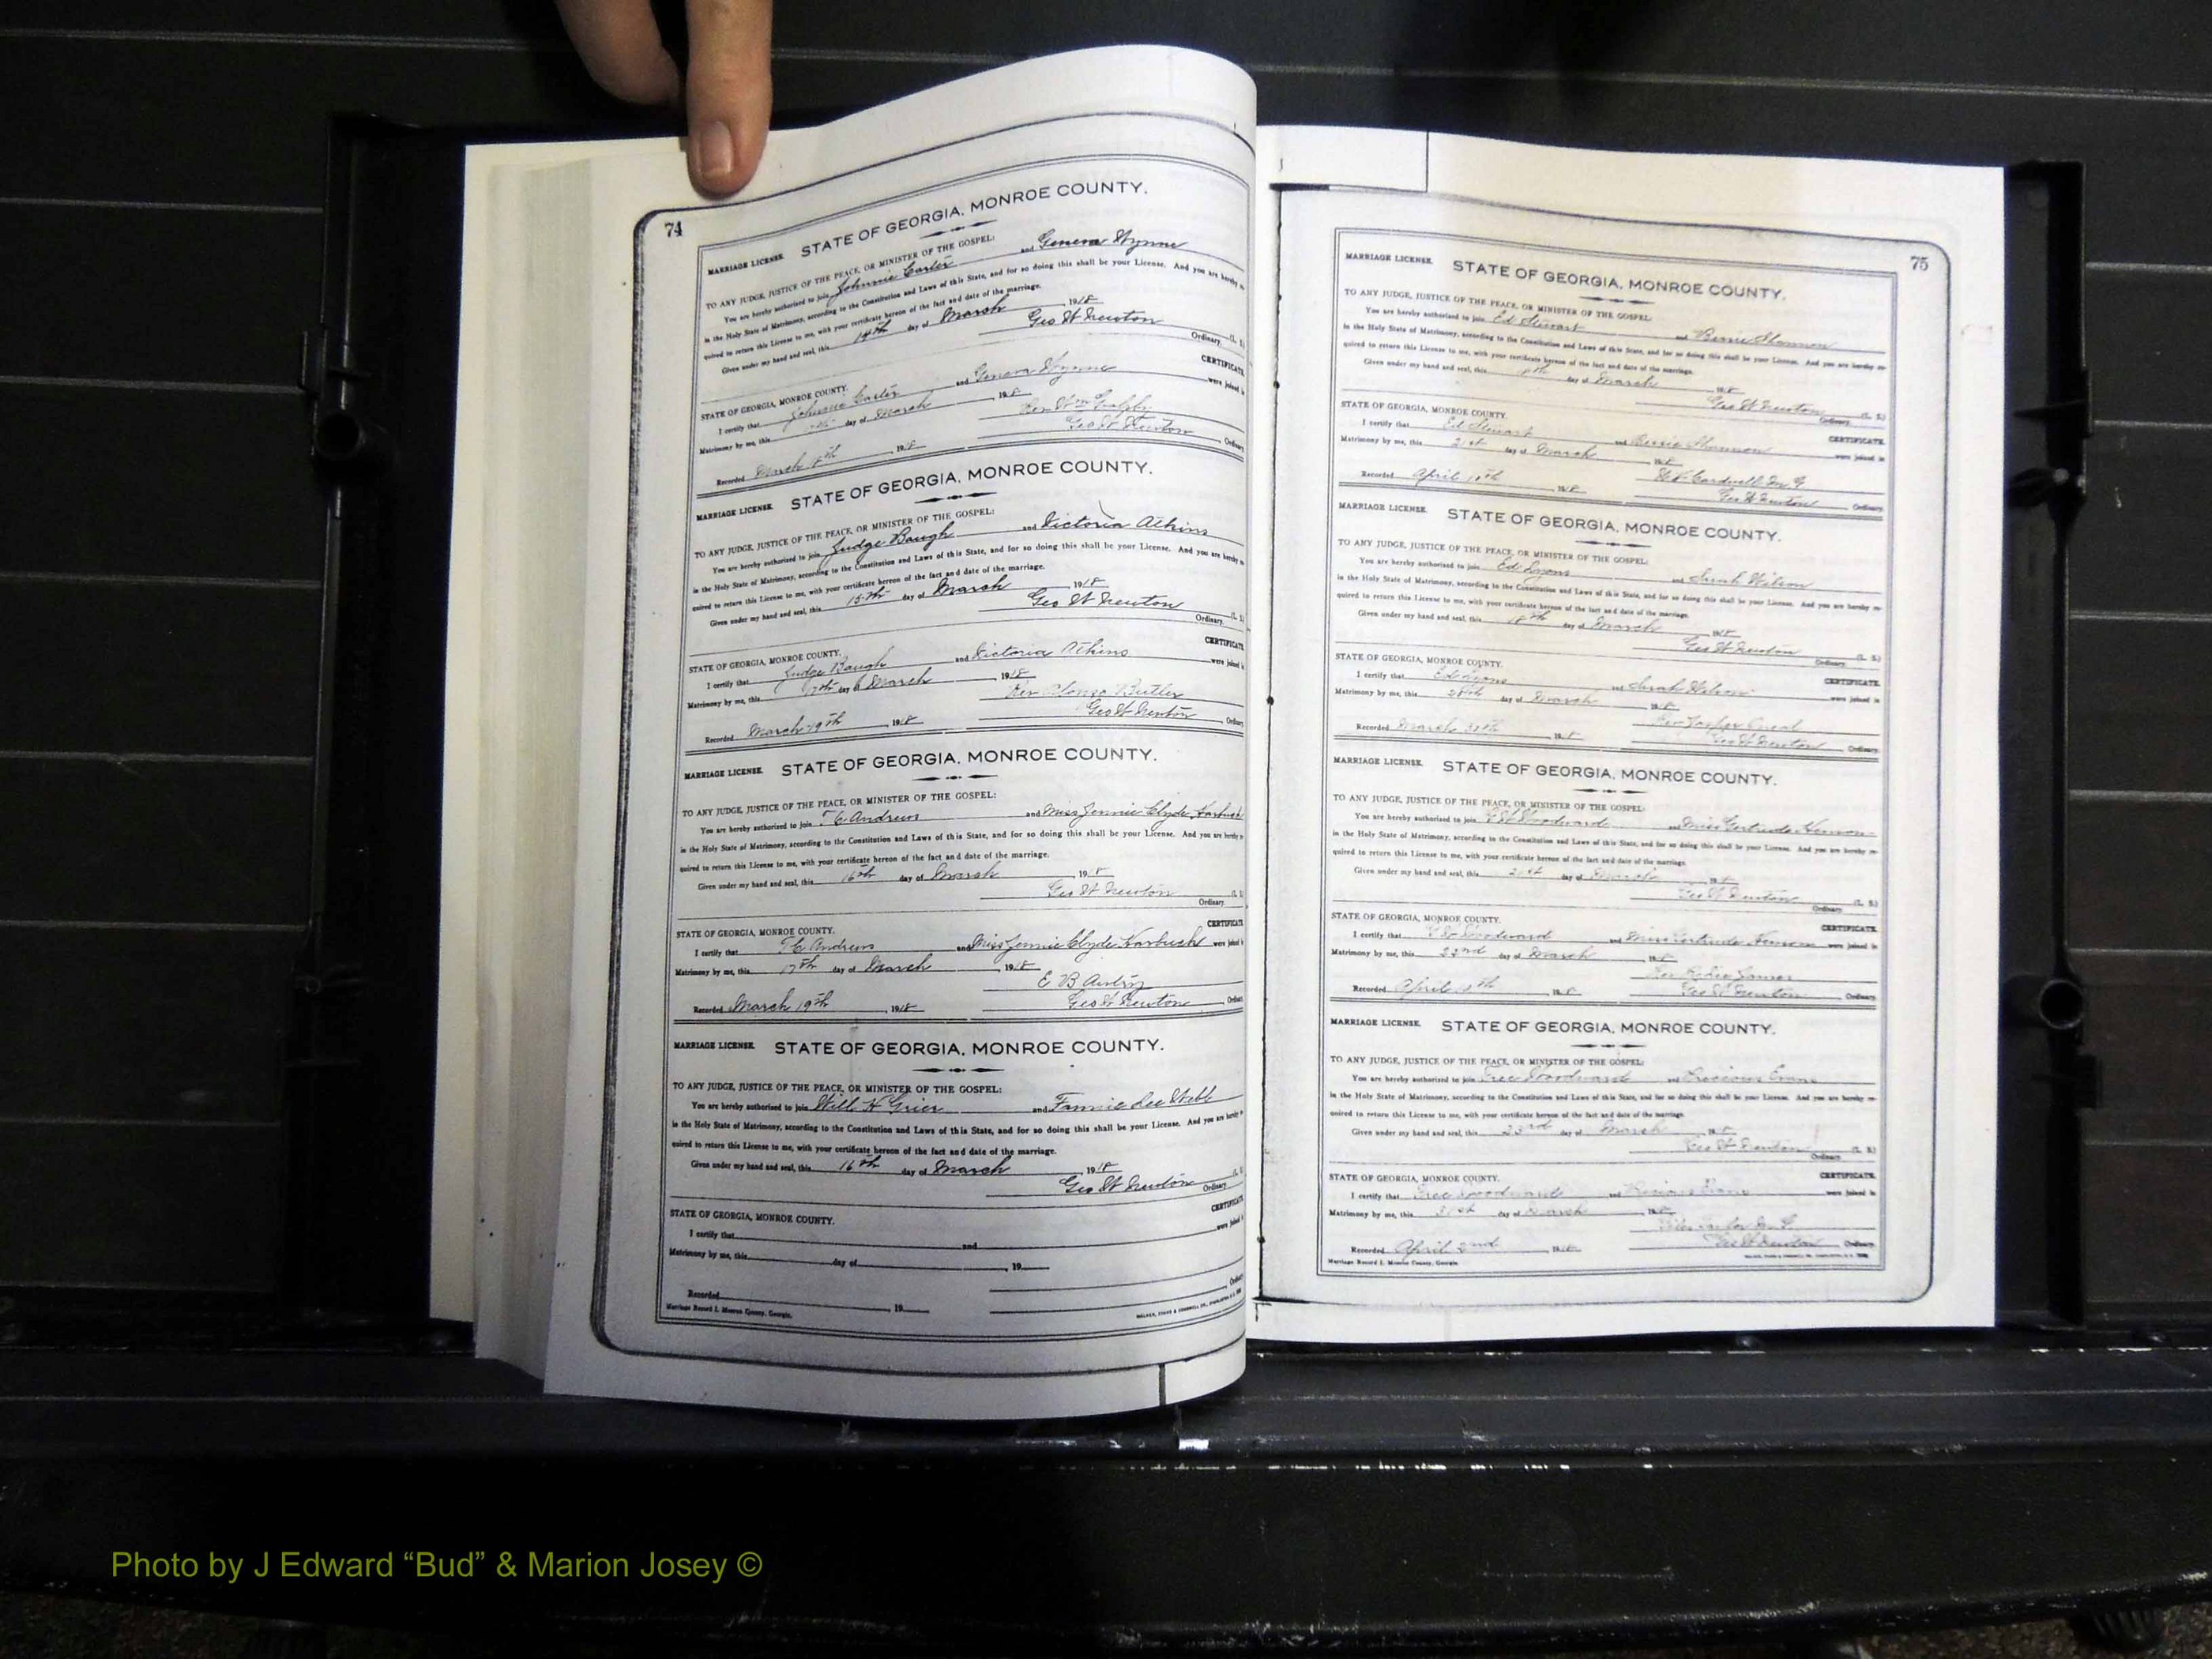 74
MARRIAGE LICENSE. STATE OF GEORGIA, MONROE COUNTY.
TO ANY JUDGE, JUSTICE OF THE PEACE, OR MINISTER OF THE GOSPEL:
You are hereby authorized to join Johnnie Carter and Geneva Wynne
in the Holy State of Matrimony, according to the Constitution and Laws of this State, and for so doing this shall be your License. And you are hereby re-
quired to return this License to me, with your certificate hereon of the fact and date of the marriage.
Given under my hand and seal, this day of March 1918
Geo W Newton (L. S.)
Ordinary.
CERTIFICATE.
STATE OF GEORGIA, MONROE COUNTY.
I certify that Johnnie Carter and Geneva Wynne were joined in
Matrimony by me, this day of March 1918
Rev Wm
Recorded March 1918 Geo W Newton Ordinary
MARRIAGE LICENSE. STATE OF GEORGIA, MONROE COUNTY.
TO ANY JUDGE, JUSTICE OF THE PEACE, OR MINISTER OF THE GOSPEL:
You are hereby authorized to join Judge Baugh and Victoria Atkins
in the Holy State of Matrimony, according to the Constitution and Laws of this State, and for so doing this shall be your License. And you are hereby re-
quired to return this License to me, with your certificate hereon of the fact and date of the marriage.
Given under my hand and seal, this 15th day of March 1918
Geo W Newton (L. S.)
Ordinary.
CERTIFICATE.
STATE OF GEORGIA, MONROE COUNTY.
I certify that Judge Baugh and Victoria Atkins were joined in
Matrimony by me, this 17th day of March 1918
Rev Alonzo Butler
Recorded March 19th 1918 Geo W Newton Ordinary
MARRIAGE LICENSE. STATE OF GEORGIA, MONROE COUNTY.
TO ANY JUDGE, JUSTICE OF THE PEACE, OR MINISTER OF THE GOSPEL:
You are hereby authorized to join T C Andrews and Miss Jennie Clyde Harbuck
in the Holy State of Matrimony, according to the Constitution and Laws of this State, and for so doing this shall be your License. And you are hereby re-
quired to return this License to me, with your certificate hereon of the fact and date of the marriage.
Given under my hand and seal, this 16th day of March 1918
Geo W Newton (L. S.)
Ordinary.
CERTIFICATE.
STATE OF GEORGIA, MONROE COUNTY.
I certify that T C Andrews and Miss Jennie Clyde Harbuck were joined in
Matrimony by me, this 17th day of March 1918
E B Awtry
Recorded March 19th 1918 Geo W Newton Ordinary
MARRIAGE LICENSE. STATE OF GEORGIA, MONROE COUNTY.
TO ANY JUDGE, JUSTICE OF THE PEACE, OR MINISTER OF THE GOSPEL:
You are hereby authorized to join Will H Grier and Fannie Lee Webb
in the Holy State of Matrimony, according to the Constitution and Laws of this State, and for so doing this shall be your License. And you are hereby re-
quired to return this License to me, with your certificate hereon of the fact and date of the marriage.
Given under my hand and seal, this 16th day of March 1918
Geo W Newton (L. S.)
Ordinary.
CERTIFICATE.
STATE OF GEORGIA, MONROE COUNTY.
I certify that and were joined in
Matrimony by me, this day of 19
Recorded 19 Ordinary
Marriage Record I. Monroe County, Georgia.
75
MARRIAGE LICENSE. STATE OF GEORGIA, MONROE COUNTY.
TO ANY JUDGE, JUSTICE OF THE PEACE, OR MINISTER OF THE GOSPEL:
You are hereby authorized to join Ed Stewart and Bessie Shannon
in the Holy State of Matrimony, according to the Constitution and Laws of this State, and for so doing this shall be your License. And you are hereby re-
quired to return this License to me, with your certificate hereon of the fact and date of the marriage.
Given under my hand and seal, this day of March 1918
Geo W Newton (L. S.)
Ordinary.
STATE OF GEORGIA, MONROE COUNTY. CERTIFICATE.
I certify that Ed Stewart and Bessie Shannon were joined in
Matrimony by me, this 21st day of March 1918
Cardwell M G
Recorded April 1918 Geo W Newton Ordinary
MARRIAGE LICENSE. STATE OF GEORGIA, MONROE COUNTY.
TO ANY JUDGE, JUSTICE OF THE PEACE, OR MINISTER OF THE GOSPEL:
You are hereby authorized to join Ed Lyons and Sarah Wilson
in the Holy State of Matrimony, according to the Constitution and Laws of this State, and for so doing this shall be your License. And you are hereby re-
quired to return this License to me, with your certificate hereon of the fact and date of the marriage.
Given under my hand and seal, this 18th day of March 1918
Geo W Newton (L. S.)
Ordinary.
STATE OF GEORGIA, MONROE COUNTY. CERTIFICATE.
I certify that Ed Lyons and Sarah Wilson were joined in
Matrimony by me, this day of March 1918
Rev
Recorded March 1918 Geo W Newton Ordinary
MARRIAGE LICENSE. STATE OF GEORGIA, MONROE COUNTY.
TO ANY JUDGE, JUSTICE OF THE PEACE, OR MINISTER OF THE GOSPEL:
You are hereby authorized to join Woodward and Miss Gertrude
in the Holy State of Matrimony, according to the Constitution and Laws of this State, and for so doing this shall be your License. And you are hereby re-
quired to return this License to me, with your certificate hereon of the fact and date of the marriage.
Given under my hand and seal, this 21st day of March 1918
Geo W Newton (L. S.)
Ordinary.
STATE OF GEORGIA, MONROE COUNTY. CERTIFICATE.
I certify that Woodward and Miss Gertrude were joined in
Matrimony by me, this day of March 1918
Rev
Recorded April 1918 Geo W Newton Ordinary
MARRIAGE LICENSE. STATE OF GEORGIA, MONROE COUNTY.
TO ANY JUDGE, JUSTICE OF THE PEACE, OR MINISTER OF THE GOSPEL:
You are hereby authorized to join Woodward and Evans
in the Holy State of Matrimony, according to the Constitution and Laws of this State, and for so doing this shall be your License. And you are hereby re-
quired to return this License to me, with your certificate hereon of the fact and date of the marriage.
Given under my hand and seal, this 23rd day of March 1918
Geo W Newton (L. S.)
Ordinary.
STATE OF GEORGIA, MONROE COUNTY. CERTIFICATE.
I certify that Woodward and Evans were joined in
Matrimony by me, this 31st day of March 1918
Recorded April 2nd 1918 Geo W Newton Ordinary
Marriage Record I. Monroe County, Georgia.
Photo by J Edward “Bud” & Marion Josey ©